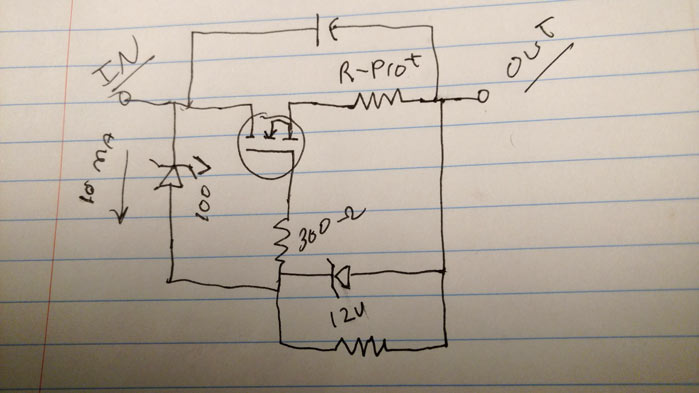 IN
R-Prot
OUT
10 mA
100 V
300 Ω
12V